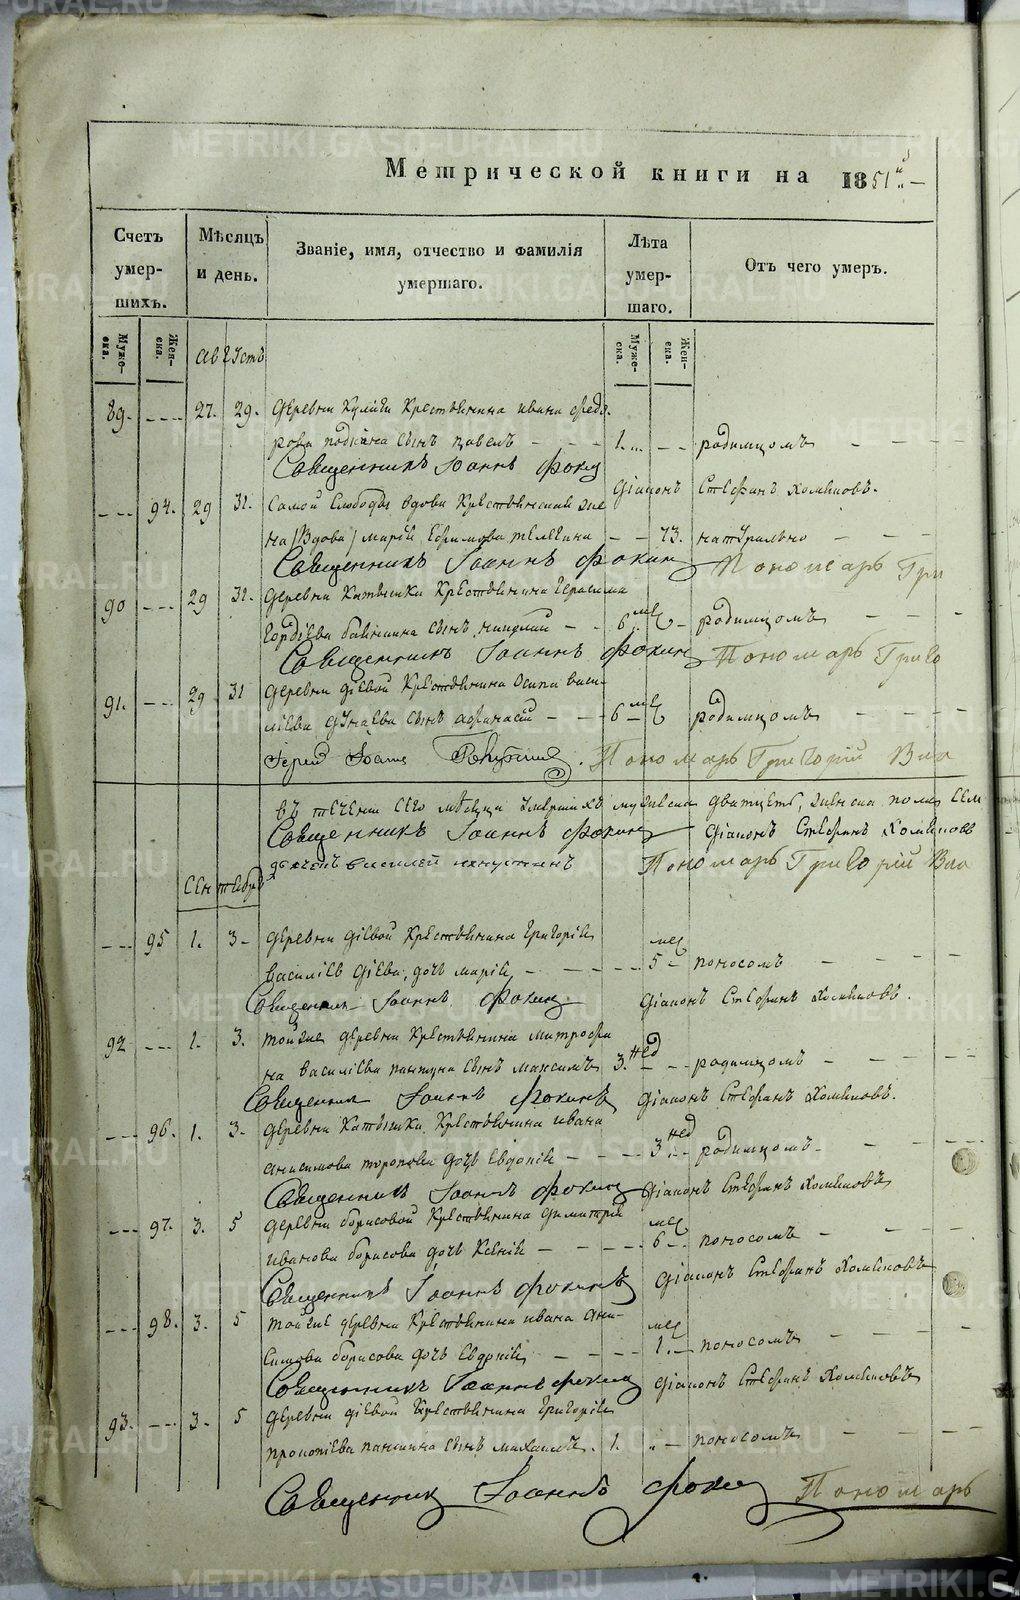 Метрической книги на 1851й
Счетъ умершихъ.
Мѣсяцъ и день.
Званіе, имя, отчество и фамилія умершаго.
Лѣта умершаго.
Отъ чего умеръ.
Мужеска.
Женска.
августъ
Мужеска.
Женска.
89. 27. 29. деревни Крестьянина ивана федо
рова сынъ павелъ 1. родимцомъ
Священникъ Іоаннъ фокин
діаконъ Стефанъ Хомяковъ.
94. 29 31. Самой Слободы вдова Крестьянская
на /Вдова/ марія Ефимова 73. натурально
Священникъ Іоаннъ фокин Пономарь Гри
90 29 31. деревни Катышки Крестьянина Герасима
Гордѣева сынъ николай 6 мес родимцомъ
Священникъ Іоаннъ фокин Пономарь Григо
91. 29 31 деревни діевой Крестьянина Осипа васи
ліева дунаева сынъ афанасій 6 мес родимцомъ
Іерей Іоаннъ Пономарь Григорій Вла
въ теченіи сего мѣсяца умершихъ мужеска дватцеть, женска пола сем
Священникъ Іоаннъ фокин діаконъ Стефанъ Хомяковъ
дьячекъ василей Пономарь Григорій Вла
сентебрь
95 1. 3 деревни діевой Крестьянина григорія
василіев діева, дочь марія 5 мес поносомъ
Священникъ Іоаннъ фокин діаконъ Стефанъ Хомяковъ.
92 1. 3. тойже деревни Крестьянина митрофа
на василіева сынъ максимъ 3. нед родимцомъ
Священникъ Іоаннъ фокинъ діаконъ Стефанъ Хомяковъ.
96. 1. 3. деревни Катышки Крестьянина ивана
анисимова торопова дочь Евдокія 3 нед родимцомъ
Священникъ Іоаннъ фокин діаконъ Стефанъ Хомяковъ
97. 3. 5 деревни борисовой Крестьянина димитрія
иванова борисова дочь Ксенія 6 мес поносомъ
Священникъ Іоаннъ фокинъ діаконъ Стефанъ Хомяковъ
98. 3. 5 тойже деревни Крестьянина ивана ани
симова борисова дочь Евдокія 1. мес поносомъ
Священникъ Іоаннъ фокин діаконъ Стефанъ Хомяковъ
93. 3. 5 деревни діевой Крестьянина григорія
прокопіева паншина сынъ михаилъ. 1. поносомъ
Священник Іоаннъ фокин Пономарь
METRIKI.GASO-URAL.RU